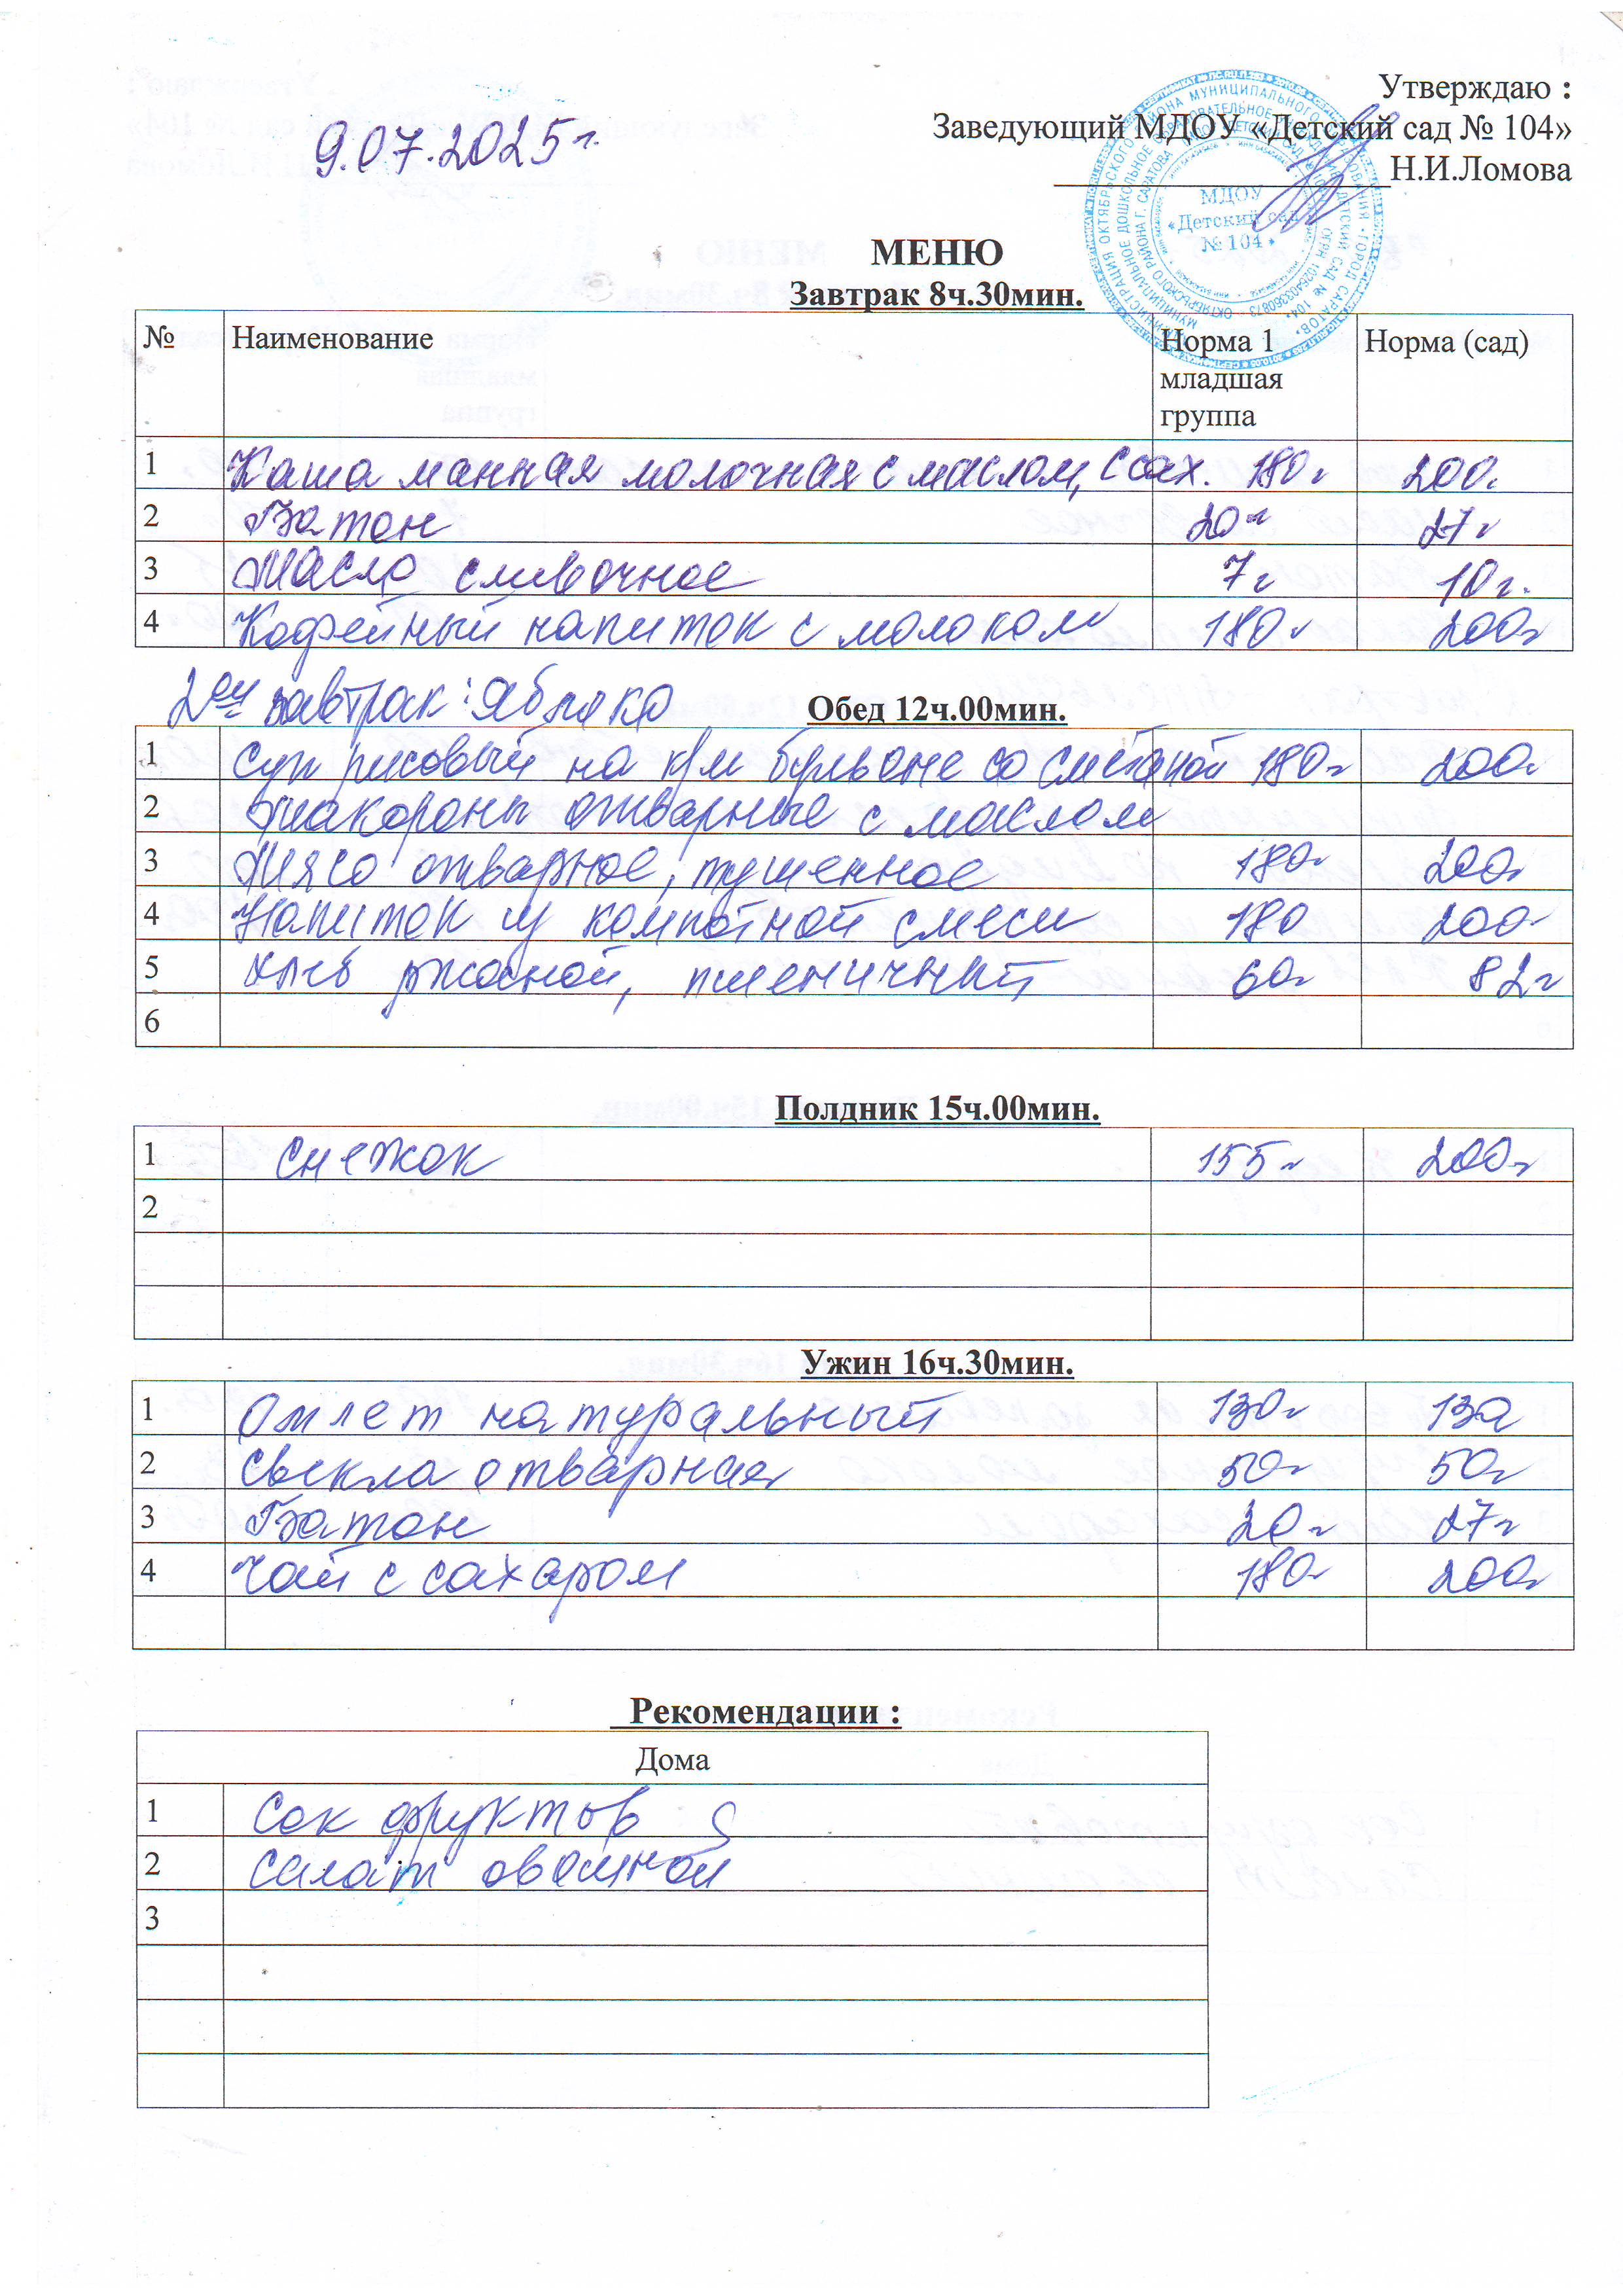 Утверждаю :
9.07.2025г.
Заведующий МДОУ «Детский сад № 104»
Н.И.Ломова
МДОУ
«Детский сад
№ 104»
МЕНЮ
Завтрак 8ч.30мин.
№ Наименование Норма 1 младшая группа Норма (сад)
1 Каша манная молочная с маслом, с сах. 180г 200г
2 Батон 20г 27г
3 Масло сливочное 7г 10г.
4 Кофейный напиток с молоком 180г 200г
2ой завтрак: Яблоко
Обед 12ч.00мин.
1 Суп рисовый на к/м бульоне со сметаной 180г 200г
2 Макароны отварные с маслом
3 Мясо отварное, тушенное 180г 200г
4 Напиток из компотной смеси 180 200г
5 Хлеб ржаной, пшеничный 60г 82г
6
Полдник 15ч.00мин.
1 Снежок 155г 200г
2
Ужин 16ч.30мин.
1 Омлет натуральный 130г 130
2 Свекла отварная 50г 50г
3 Батон 20г 27г
4 Чай с сахаром 180г 200г
Рекомендации :
Дома
1 Сок фруктов
2 Салат овощной
3